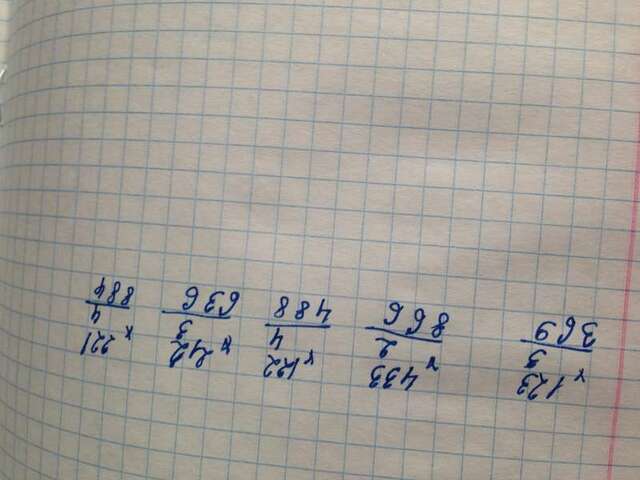 ×123
3
369
×433
2
866
×122
4
488
×212
3
636
×221
4
884